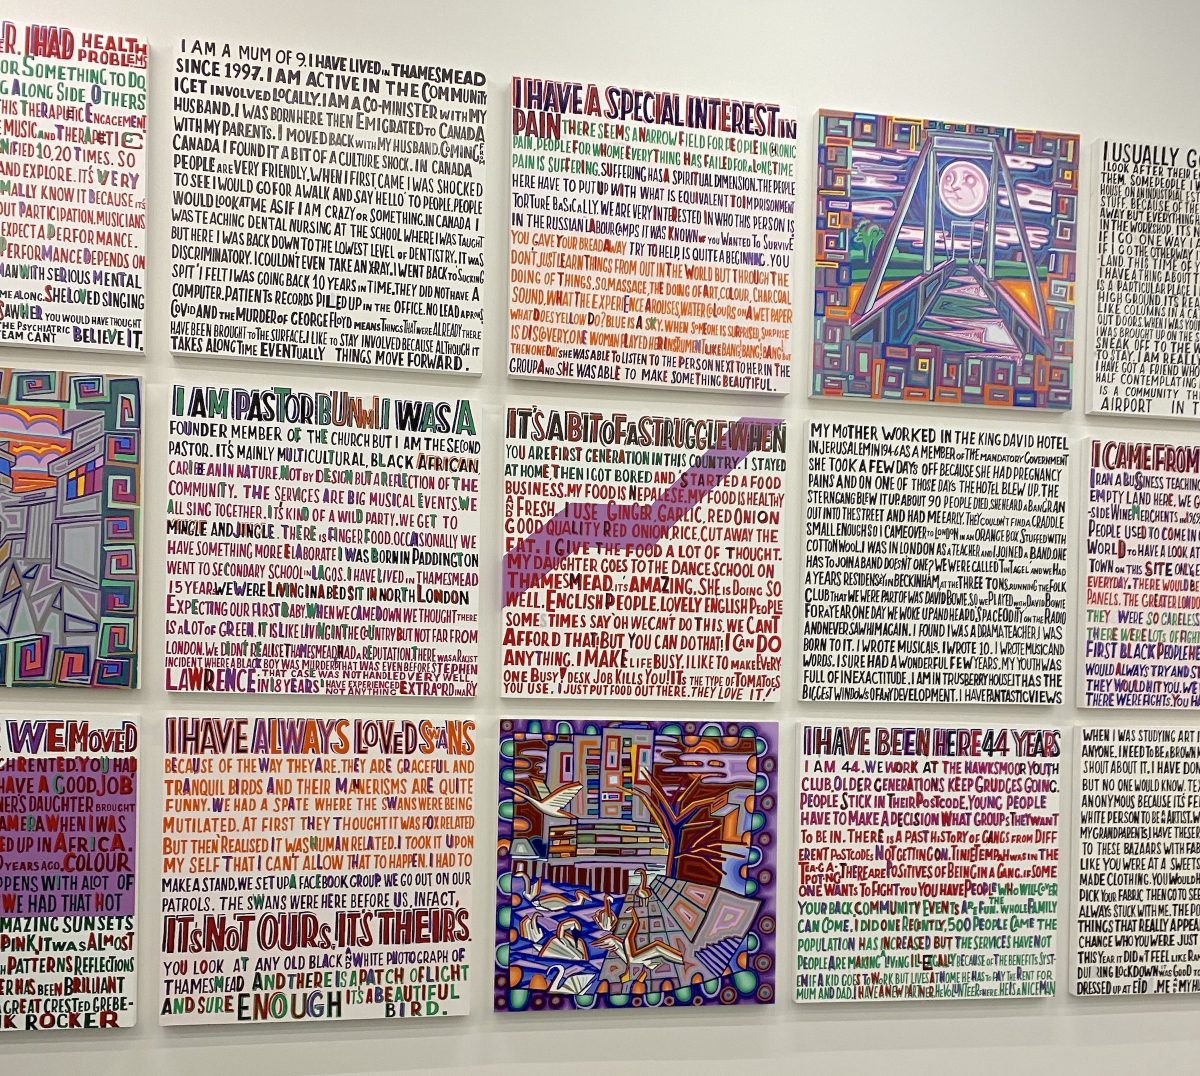 R. I HAD HEALTH PROBLEMS
OR SOMETHING TO DO
G ALONG SIDE OTHERS
THIS THERAPUETIC ENGAGEMENT
MUSIC AND THERAPETIC
NIFIED 10,20 TIMES. SO
AND EXPLORE. IT'S VERY
MALLY KNOW IT BECAUSE IT'S
OUT PARTICIPATION. MUSICIANS
EXPECT A PERFORMANCE.
PERFORMANCE DEPENDS ON
MAN WITH SERIOUS MENTAL
ME ALONG. SHE LOVED SINGING
SAW HER YOU WOULD HAVE THOUGHT
THE PSYCHIATRIC
TEAM CANT BELIEVE IT.
I AM A MUM OF 9. I HAVE LIVED IN THAMESMEAD
SINCE 1997. I AM ACTIVE IN THE COMMUNITY
I GET INVOLVED LOCALLY. I AM A CO-MINISTER WITH MY
HUSBAND. I WAS BORN HERE THEN EMIGRATED TO CANADA
WITH MY PARENTS. I MOVED BACK WITH MY HUSBAND. COMING FROM
CANADA I FOUND IT A BIT OF A CULTURE SHOCK. IN CANADA
PEOPLE ARE VERY FRIENDLY, WHEN I FIRST CAME I WAS SHOCKED
TO SEE I WOULD GO FOR A WALK AND SAY 'HELLO' TO PEOPLE, PEOPLE
WOULD LOOK AT ME AS IF I AM CRAZY OR SOMETHING, IN CANADA I
WAS TEACHING DENTAL NURSING AT THE SCHOOL WHERE I WAS TAUGHT
BUT HERE I WAS BACK DOWN TO THE LOWEST LEVEL OF DENTISTRY. IT WAS
DISCRIMINATORY. I COULDN'T EVEN TAKE AN XRAY. I WENT BACK TO 'SUCKING
SPIT' I FELT I WAS GOING BACK 10 YEARS IN TIME, THEY DID NOT HAVE A
COMPUTER. PATIENTS RECORDS PILED UP IN THE OFFICE. NO LEAD APRONS
COVID AND THE MURDER OF GEORGE FLOYD MEANS THINGS THAT WERE ALREADY THERE
HAVE BEEN BROUGHT TO THE SURFACE. I LIKE TO STAY INVOLVED BECAUSE ALTHOUGH IT
TAKES ALONG TIME EVENTUALLY THINGS MOVE FORWARD.
I HAVE A SPECIAL INTEREST IN
PAIN THERE SEEMS A NARROW FIELD FOR PEOPLE IN CHRONIC
PAIN, PEOPLE FOR WHOM EVERYTHING HAS FAILED FOR A LONG TIME
PAIN IS SUFFERING. SUFFERING HAS A SPIRITUAL DIMENSION. THE PEOPLE
HERE HAVE TO PUT UP WITH WHAT IS EQUIVALENT TO IMPRISONMENT
TORTURE BASICALLY. WE ARE VERY INTERESTED IN WHO THIS PERSON IS
IN THE RUSSIAN LABOUR CAMPS IT WAS KNOWN IF YOU WANTED TO SURVIVE
YOU GAVE YOUR BREAD AWAY TRY TO HELP, IS QUITE A BEGINNING. YOU
DON'T JUST LEARN THINGS FROM OUT IN THE WORLD BUT THROUGH THE
DOING OF THINGS, SO, MASSAGE, THE DOING OF ART, COLOUR, CHARCOAL
SOUND, WHAT THE EXPERIENCE AROUSES, WATER COLOURS ON A WET PAPER
WHAT DOES YELLOW DO? BLUE IS A SKY. WHEN SOMEONE IS SURPRISED, SURPRISE
IS DISCOVERY. ONE WOMAN PLAYED HER INSTRUMENT LIKE BANG! BANG! BANG! BUT
THEN ONE DAY SHE WAS ABLE TO LISTEN TO THE PERSON NEXT TO HER IN THE
GROUP AND SHE WAS ABLE TO MAKE SOMETHING BEAUTIFUL.
I USUALLY G
I LOOK AFTER THEIR
THEM. SOME PEOPLE
HOUSE ON INDUSTRIAL EST
STUFF, BECAUSE OF THE
AWAY BUT EVERYTHING
IN THE WORKSHOP. IT'S
IF I GO ONE WAY I
IF I GO THE OTHER WAY
-LAND THE TIME OF
I HAVE A THING ABOUT
IS A PARTICULAR PLACE
HIGH GROUND. ITS RE
LIKE COLUMNS IN A C
OUT DOORS. WHEN WAS YOU
I WAS BROUGHT UP IN
SNEAK OFF TO THE W
TO STAY. I AM REALL
I HAVE GOT A FRIEND WHO
HALF CONTEMPLATING
IS A COMMUNITY TH
AIRPORT IN T
I AM PASTOR BUNMI I WAS A
FOUNDER MEMBER OF THE CHURCH BUT I AM THE SECOND
PASTOR. IT'S MAINLY MULTICULTURAL, BLACK AFRICAN,
CARIBBEAN IN NATURE. NOT BY DESIGN BUT A REFLECTION OF THE
COMMUNITY. THE SERVICES ARE BIG MUSICAL EVENTS. WE
ALL SING TOGETHER. IT'S KIND OF A WILD PARTY. WE GET TO
MINGLE AND JINGLE. THERE IS FINGER FOOD. OCCASIONALLY WE
HAVE SOMETHING MORE ELABORATE I WAS BORN IN PADDINGTON
WENT TO SECONDARY SCHOOL IN LAGOS. I HAVE LIVED IN THAMESMEAD
15 YEARS. WE WERE LIVING IN A BED SIT IN NORTH LONDON
EXPECTING OUR FIRST BABY. WHEN WE CAME DOWN WE THOUGHT THERE
IS A LOT OF GREEN. IT IS LIKE LIVING IN THE COUNTRY BUT NOT FAR FROM
LONDON. WE DIDN'T REALISE THAMESMEAD HAD A REPUTATION. THERE WAS A RACIST
INCIDENT WHERE A BLACK BOY WAS MURDER THAT WAS EVEN BEFORE STEPHEN
LAWRENCE. THAT CASE WAS NOT HANDLED VERY WELL.
IN 18 YEARS I HAVE EXPERIENCED NOT ANYTHING EXTRAORDINARY
IT'S A BIT OF A STRUGGLE WHEN
YOU ARE FIRST GENERATION IN THIS COUNTRY. I STAYED
AT HOME, THEN I GOT BORED AND STARTED A FOOD
BUSINESS. MY FOOD IS NEPALESE. MY FOOD IS HEALTHY
AND FRESH. I USE GINGER, GARLIC, RED ONION
GOOD QUALITY RED ONION, RICE, CUT AWAY THE
FAT. I GIVE THE FOOD A LOT OF THOUGHT.
MY DAUGHTER GOES TO THE DANCE SCHOOL ON
THAMESMEAD, IT'S AMAZING. SHE IS DOING SO
WELL. ENGLISH PEOPLE. LOVELY ENGLISH PEOPLE
SOMETIMES SAY 'OH WE CANT DO THIS, WE CAN'T
AFFORD THAT' BUT YOU CAN DO THAT! I CAN DO
ANYTHING. I MAKE LIFE BUSY. I LIKE TO MAKE EVERY
ONE BUSY! DESK JOB KILLS YOU! IT'S THE TYPE OF TOMATOES
YOU USE. I JUST PUT FOOD OUT THERE, THEY LOVE IT!
MY MOTHER WORKED IN THE KING DAVID HOTEL
IN JERUSALEM IN 1946 AS A MEMBER OF THE MANDATORY GOVERNMENT
SHE TOOK A FEW DAYS OFF BECAUSE SHE HAD PREGNANCY
PAINS AND ON ONE OF THOSE DAYS THE HOTEL BLEW UP. THE
STERN GANG BLEW IT UP ABOUT 90 PEOPLE DIED, SHE HEARD A BANG RAN
OUT INTO THE STREET AND HAD ME EARLY. THEY COULDN'T FIND A CRADDLE
SMALL ENOUGH SO I CAME OVER TO LONDON IN AN ORANGE BOX STUFFED WITH
COTTON WOOL. I WAS IN LONDON AS A TEACHER AND I JOINED A BAND. ONE
HAS TO JOIN A BAND DOESN'T ONE? WE WERE CALLED TINTAGEL AND WE HAD
A YEARS RESIDENSY IN BECKINHAM AT THE THREE TONS, RUNNING THE FOLK
CLUB THAT WE WERE PART OF WAS DAVID BOWIE. SO WE PLAYED WITH DAVID BOWIE
FOR A YEAR. ONE DAY WE WOKE UP AND HEARD SPACE ODITY ON THE RADIO
AND NEVER SAW HIM AGAIN. I FOUND I WAS A DRAMA TEACHER, I WAS
BORN TO IT. I WROTE MUSICALS. I WROTE 10. I WROTE MUSIC AND
WORDS. I SURE HAD A WONDERFUL FEW YEARS. MY YOUTH WAS
FULL OF INEXACTITUDE. I AM IN TRUSBERRY HOUSE IT HAS THE
BIGGEST WINDOWS OF ANY DEVELOPMENT. I HAVE FANTASTIC VIEWS
I CAME FROM
I RAN A BUSINESS TEACHING
EMPTY LAND HERE. WE G
-SIDE WINE MERCHENTS IN 1969
PEOPLE USED TO COME IN
WORLD TO HAVE A LOOK AT
TOWN ON THIS SITE ONLY
EVERYDAY. THERE WOULD BE
PANELS. THE GREATER LONDO
THEY WERE SO CARELESS
THERE WERE LOTS OF FIGH
FIRST BLACK PEOPLE HE
WOULD ALWAYS TRY AND ST
THEY WOULD HIT YOU. WE
THERE WERE FIGHTS. YOU HA
WE MOVED
CH RENTED. YOU HAD
HAVE A GOOD JOB
NERS DAUGHTER BROUGHT
CAMERA WHEN I WAS
ED UP IN AFRICA.
YEARS AGO. COLOUR
PPENS WITH ALOT OF
WE HAD THAT HOT
MAZING SUN SETS
PINK, IT WAS ALMOST
H PATTERNS REFLECTIONS
ER HAS BEEN BRILLIANT
GREAT CRESTED GREBE-
K ROCKER
I HAVE ALWAYS LOVED SWANS
BECAUSE OF THE WAY THEY ARE. THEY ARE GRACEFUL AND
TRANQUIL BIRDS AND THEIR MANERISMS ARE QUITE
FUNNY. WE HAD A SPATE WHERE THE SWANS WERE BEING
MUTILATED. AT FIRST THEY THOUGHT IT WAS FOX RELATED
BUT THEN REALISED IT WAS HUMAN RELATED. I TOOK IT UPON
MY SELF THAT I CANT ALLOW THAT TO HAPPEN. I HAD TO
MAKE A STAND, WE SET UP A FACEBOOK GROUP. WE GO OUT ON OUR
PATROLS. THE SWANS WERE HERE BEFORE US. INFACT,
IT'S NOT OURS, IT'S THEIRS.
YOU LOOK AT ANY OLD BLACK AND WHITE PHOTOGRAPH OF
THAMESMEAD AND THERE IS A PATCH OF LIGHT
AND SURE ENOUGH IT'S A BEAUTIFUL BIRD.
I HAVE BEEN HERE 44 YEARS
I AM 44. WE WORK AT THE HAWKSMOOR YOUTH
CLUB. OLDER GENERATIONS KEEP GRUDGES GOING.
PEOPLE STICK IN THEIR POSTCODE, YOUNG PEOPLE
HAVE TO MAKE A DECISION WHAT GROUPS THEY WANT
TO BE IN. THERE IS A PAST HISTORY OF GANGS FROM DIFF
ERENT POSTCODE. NOT GETTING ON. TINIE TEMPAH WAS IN THE
TEA-POT-ING GANG. THERE ARE POSITIVES OF BEING IN A GANG. IF SOME
ONE WANTS TO FIGHT YOU YOU HAVE PEOPLE WHO WILL COVER
YOUR BACK. COMMUNITY EVENTS ARE FUN. THE WHOLE FAMILY
CAN COME. I DID ONE RECENTLY, 500 PEOPLE CAME THE
POPULATION HAS INCREASED BUT THE SERVICES HAVE NOT
PEOPLE ARE MAKING LIVING ILLEGALLY BECAUSE OF THE BENEFITS SYST-
EM IF A KID GOES TO WORK BUT LIVES AT HOME HE HAS TO PAY THE RENT FOR
MUM AND DAD. I HAVE A NEW PARTNER. HE VOLUNTEERS HERE. HE IS A NICE MAN
WHEN I WAS STUDYING ART I
ANYONE. I NEED TO BE A BROWN
SHOUT ABOUT IT. I HAVE DON
BUT NO ONE WOULD KNOW. TEX
ANONYMOUS BECAUSE ITS FE
WHITE PERSON TO BE A ARTIST. W
MY GRANDPARENTS I HAVE THESE
TO THESE BAZAARS WITH FAB
LIKE YOU WERE AT A SWEETS
MADE CLOTHING. YOU WOULD
PICK YOUR FABRIC THEN GO TO SE
ALWAYS STUCK WITH ME. THE DO
THINGS THAT REALLY APPEA
CHANCE WHO YOU WERE JUST
THIS YEAR IT DIDN'T FEEL LIKE RAM
DURING LOCKDOWN WAS GOOD T
DRESSED UP AT EID. ME & MY HUS